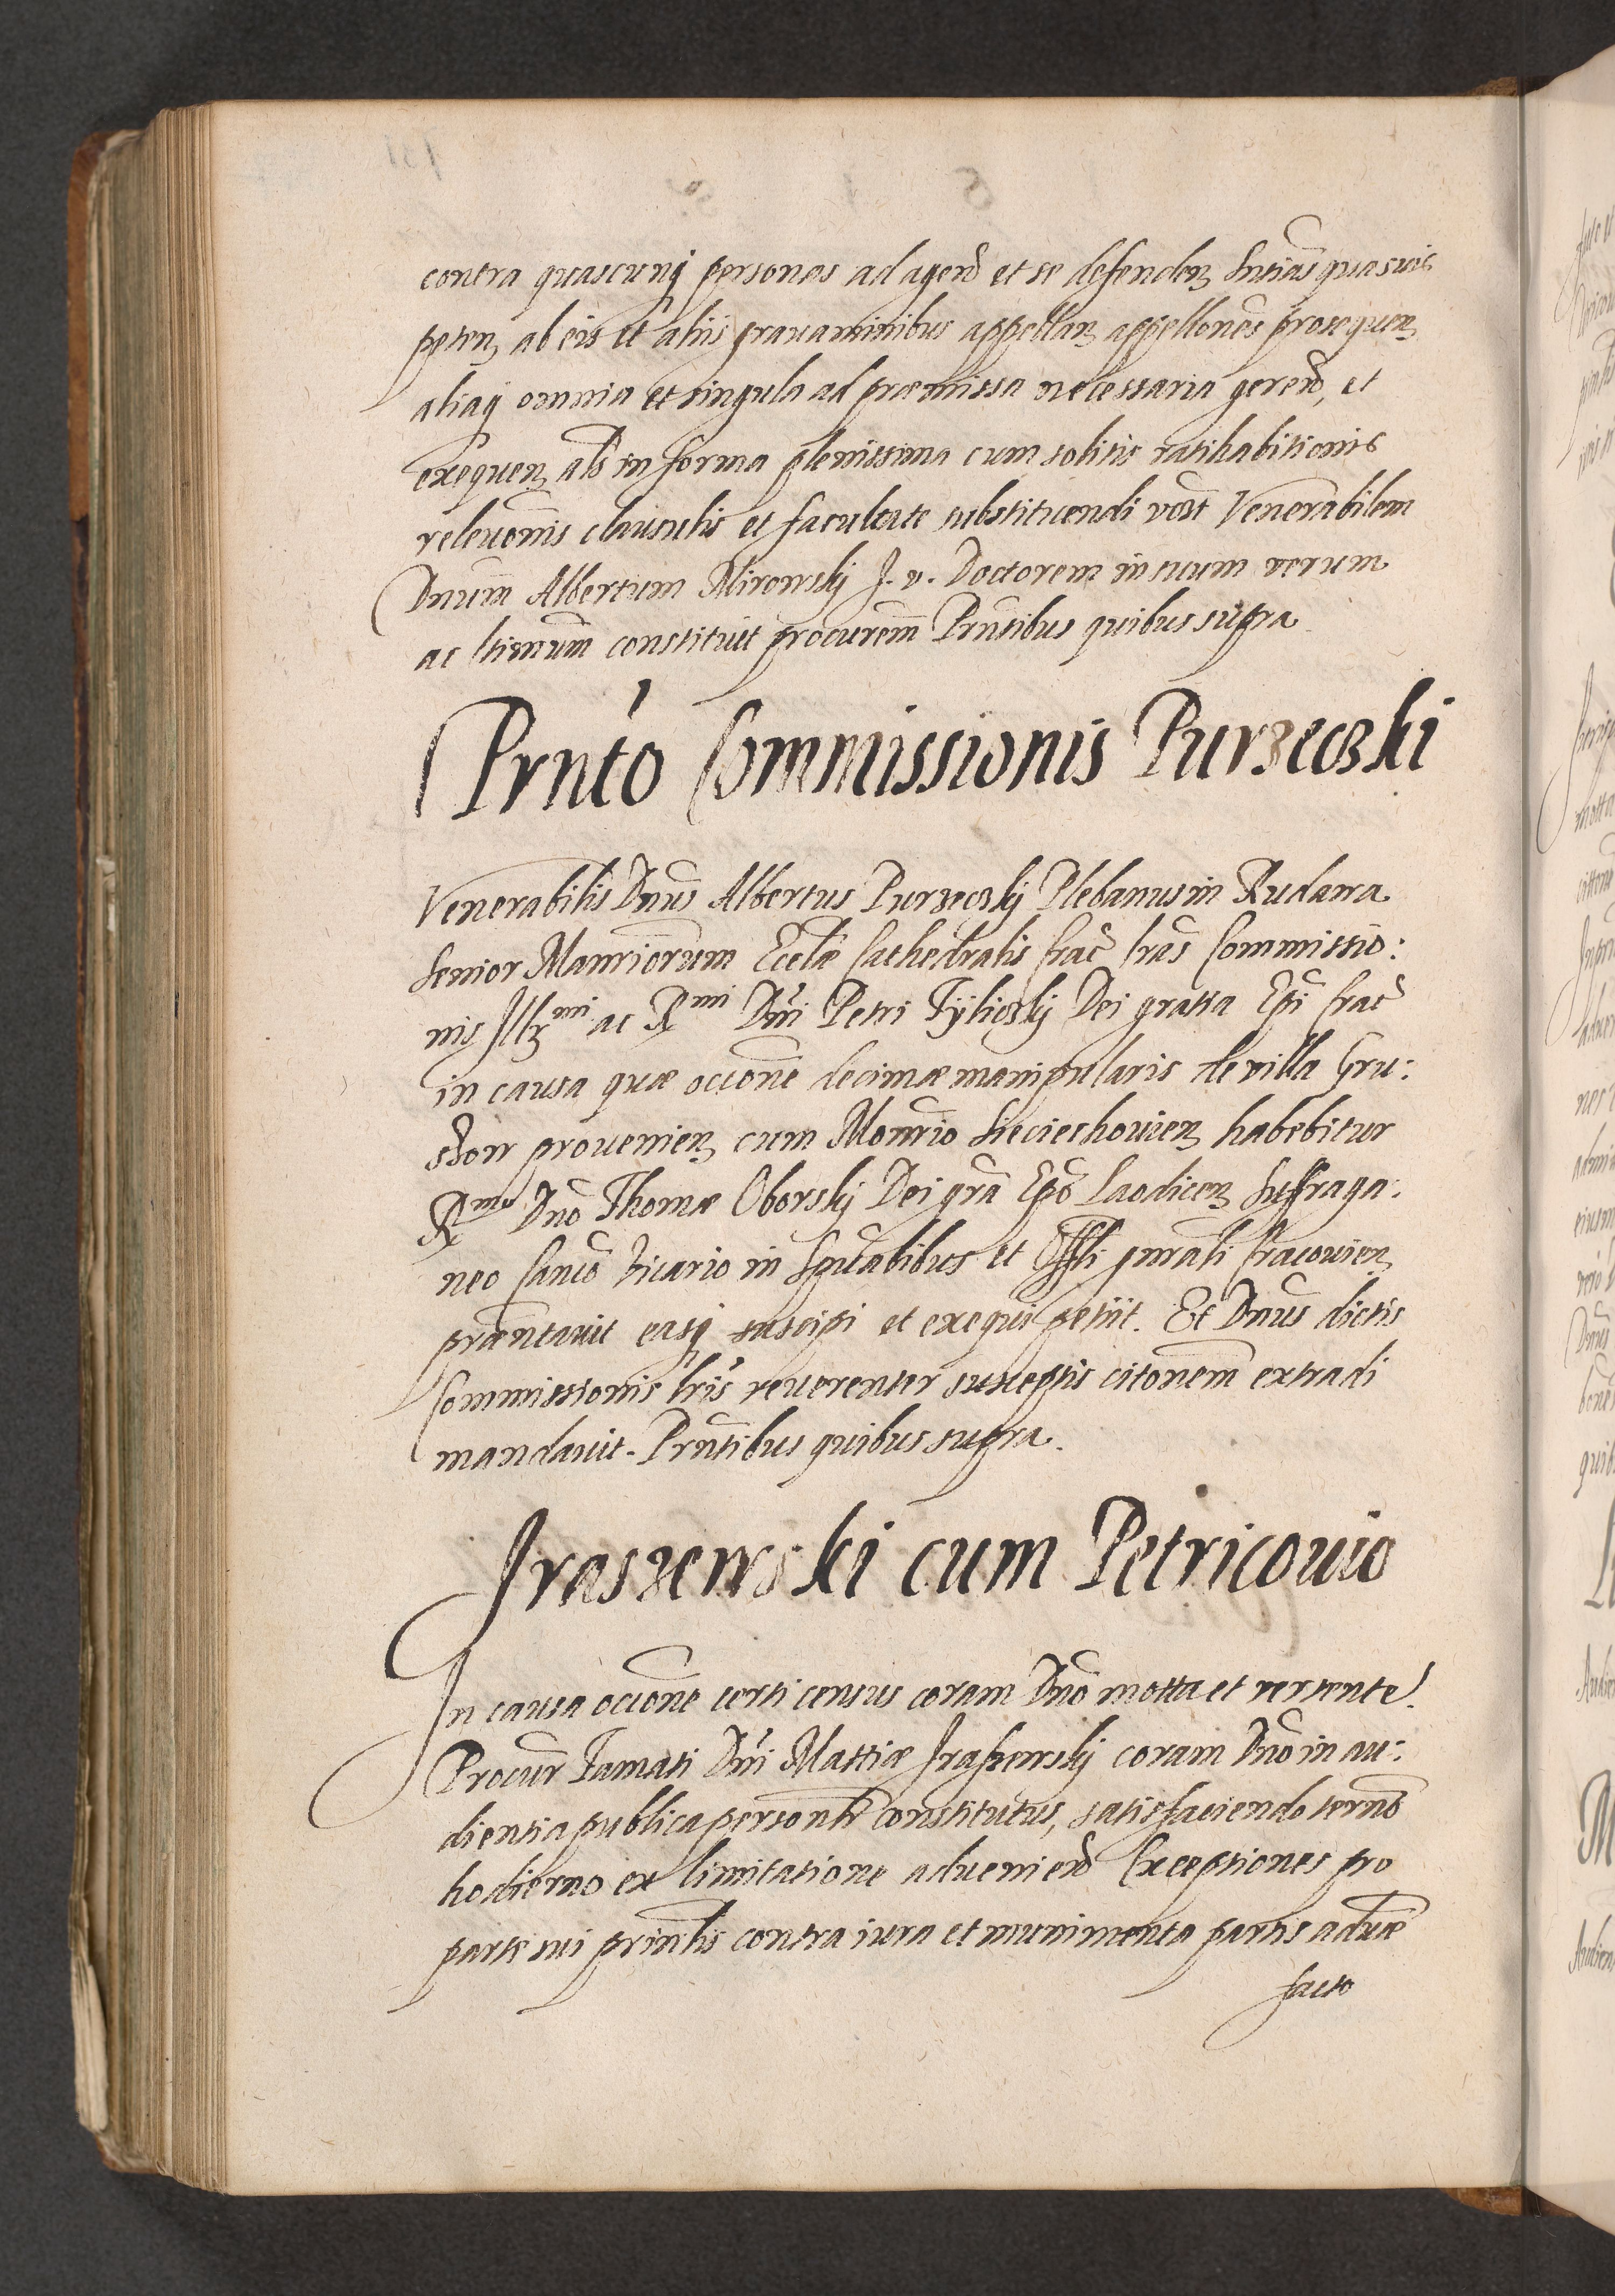 contra quascunq personas ad agend et se defenden Sntias quasuis
peten, ab eis et aliis grauaminibus appellan appellones prosequen
aliaq omnia et singula ad præmissa necessaria gerend, et
exequen, als in forma plenissima cum solitis ratihabitionis
releuonis clausulis et facultate substituendi vost Venerabilem
Dnum Albertum Mirowskij J. v. Doctorem in suum verum
ac ltimum constituit procurem Prntibus quibus supra
Prnto Commissionis Purzeczki
Venerabilis Dnus Albertus Purzeczkij Plebanus in Rudawa
Senior Manriorum Ecclæ Cathedralis Crac lras Commissio:
nis Illmi ac Rmi Dni Petri Tÿliczkij Dei gratia Epi Crac
in causa quæ occone decimæ manipularis de villa Gru:
szow prouenien, cum Monrio Sieciechouien habebitur
Rmo Dno Thomæ Oborskij Dei gra Epo Laodicen Suffraga:
neo Canco Vicario in Spualibus et Offli gnrali Cracouien
præntauit easq suscipi et exequi petiit. Et Dnus dictis
Commissionis lris reuerenter susceptis citonem extradi
mandauit. Prntibus quibus supra.
Jraszewski cum Petricouio
In causa occone certi census coram Dno motta et vertente.
Procur Famati Dni Mattiæ Jraszewskij coram Dno in au:
dientia publica personlr constitutus, satisfaciendo termo
hodierno ex limitatione aduenien Exceptiones pro
parte sui prinlis contra iura et munimenta partis aduæ
facto